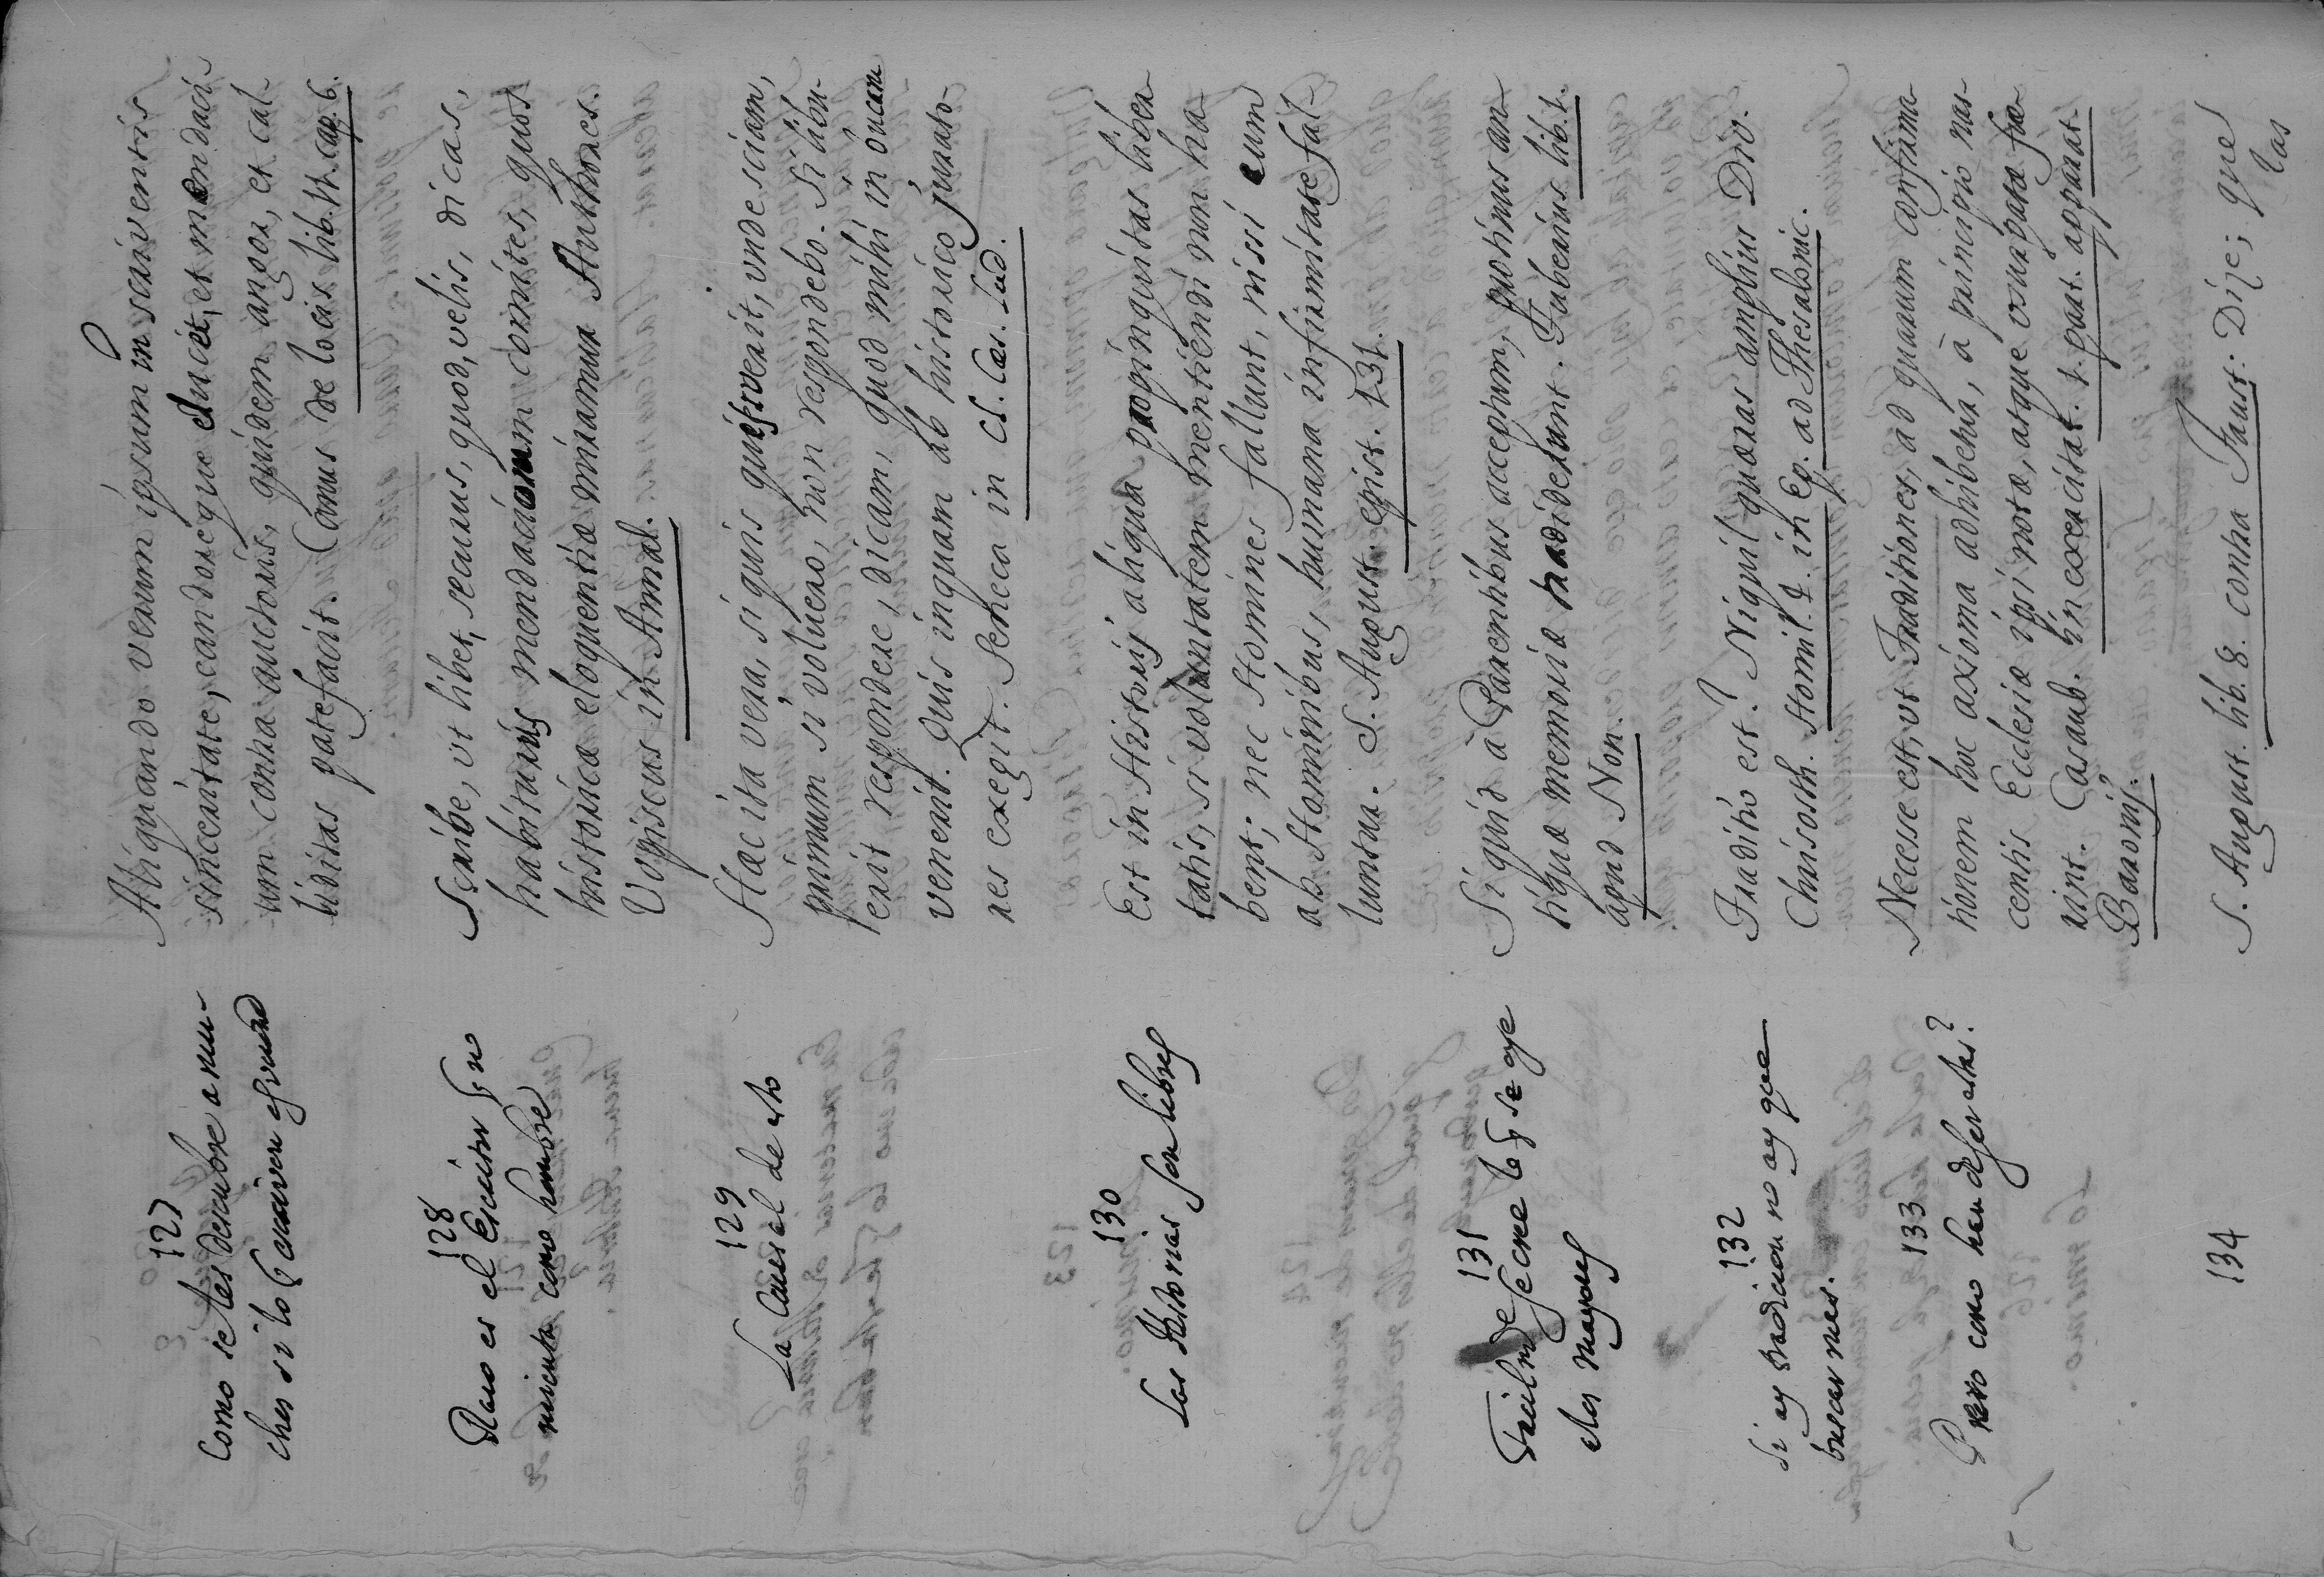 127
Como se les descubre a mu-
chos si lo quisieren esprimir
Aliquando verum ipsum in scriventis
sinceritate, candoreque elucet, et mendaci-
um contra auctoris, quidem angor, et cal-
liditas patefacit. Canus de locis lib. 11. cap. 6.
128
Raro es el Escritor q̃ no
mienta como hombre
Scribe, vt libet, securus, quod, velis, dicas,
habiturus mendaciorum comites, quos
historicæ eloquentiæ miramur Authores.
Vopiscus in Annal.
129
La Causa al de esto
Hæc ita vera, si quis quæsiverit, unde sciam,
primum si voluero, non respondebo. Si libu-
erit respondere, dicam, quod mihi in bucam
venerit. Quis inquam ab historico jurato-
res exegit. Seneca in Cl. Cæs. Lud.
130
Las Historias son libres
Est in Historijs aliqua propinquitas liber-
tatis, si voluntatem mentiendi non ha-
bent; nec Homines fallunt, nissi cum
ab Hominibus, humana infirmitate fal-
luntur. S. August. epist. 131.
131
Facilmte se cree lo q̃ se oye
a los mayores
Siquid à Parentibus acceptum, protinus an-
tiquæ memoriæ tradiderunt. Tuberius lib. 1.
apud Non.
132
Si ay tradicion no ay que
buscar mas.
Traditio est? Niquil quæras amplius Div.
Chrisosth. Homil. 4. in Ep. ad Thesalonic.
133
Pero como han de ser estas?
Necesse est, vt Traditiones, ad quarum confirma-
tionem hoc axioma adhibetur, à principio nas-
centis Ecclesiæ ipsi notæ, atque vsurpatæ fue-
rint. Casaub. in exercitat. 1. part. apparat.
Baronij.
134
S. August. lib. 8. contra Faust: Dize; que
las